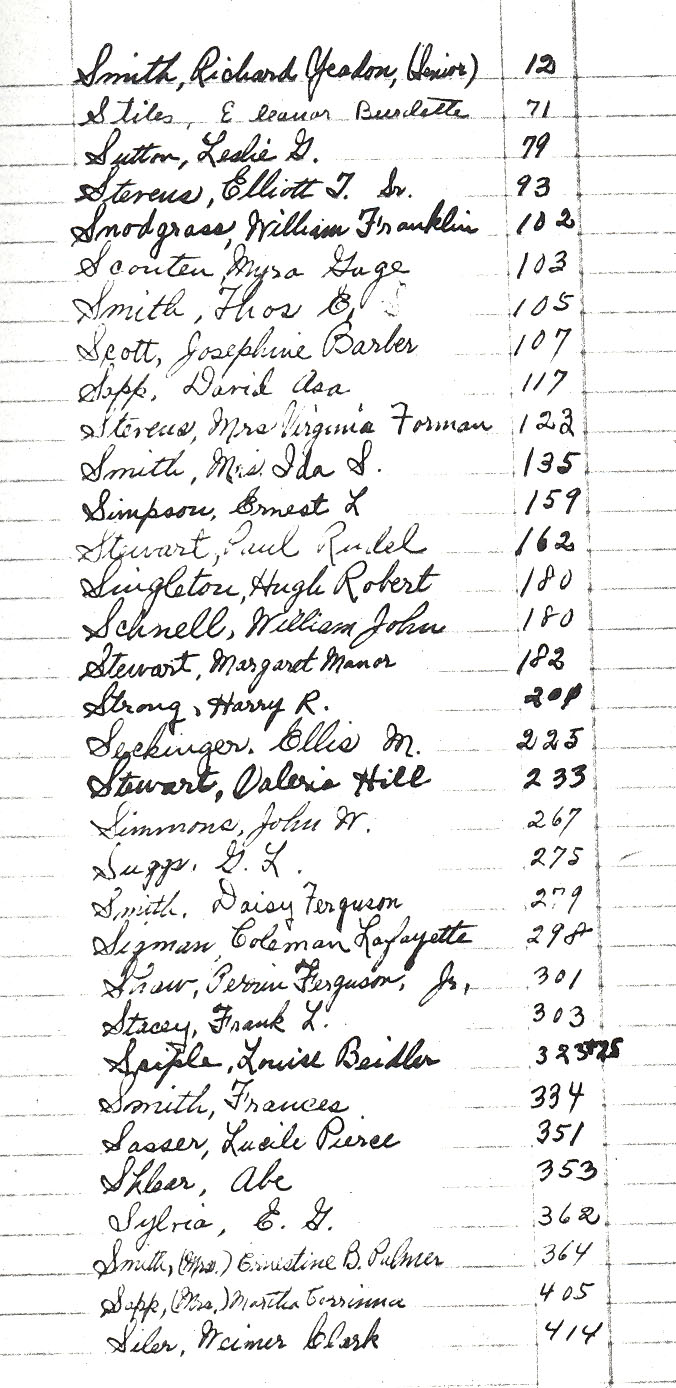 Smith, Richard Yeadon, (Senior) 12
Stiles, Eleanor Burdette 71
Sutton, Leslie G. 79
Stevens, Elliott T. Sr. 93
Snodgrass, William Franklin 102
Scouten, Myra Gage 103
Smith, Thos E. 105
Scott, Josephine Barber 107
Sapp, David Asa 117
Stevens, Mrs Virginia Forman 123
Smith, Mrs. Ida S. 135
Simpson, Ernest L 159
Stewart, Paul Rudel 162
Singleton, Hugh Robert 180
Schnell, William John 180
Stewart, Margaret Manor 182
Strong, Harry R.
Seckinger, Ellis M. 225
Stewart, Valeria Hill 233
Simmons, John W. 267
Suggs, G. L. 275
Smith, Daisy Ferguson 279
Sigman, Coleman Lafayette 298
Shaw, Perrin Ferguson, Jr, 301
Stacey, Frank L. 303
Louise Beidler
Smith, Frances 334
Sasser, Lucile Pierce 351
Shlear, Abe 353
Sylvia, E. G. 362
Smith, (Mrs.) Ernestine B. Palmer 364
Sapp, (Mrs.) Martha Corrinna 405
Siler, Weimer Clark 414